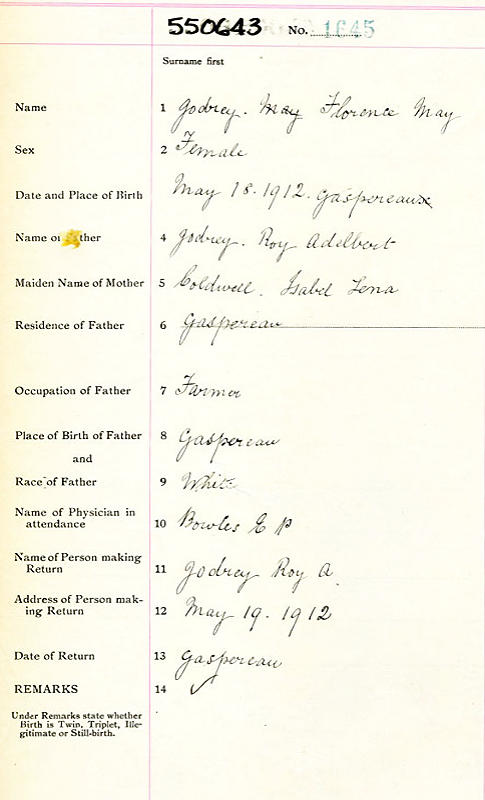 550643 No. 1645
Surname first
Name 1 Godrey. May Florence May
Sex 2 Female
Date and Place of Birth May 18. 1912. Gaspereaux
Name of Father 4 Godrey. Roy Adelbert
Maiden Name of Mother 5 Coldwell. Isabel Lena
Residence of Father 6 Gaspereau
Occupation of Father 7 Farmer
Place of Birth of Father 8 Gaspereau
and
Race of Father 9 White
Name of Physician in
attendance 10 Bowles E P
Name of Person making
Return 11 Godrey Roy A.
Address of Person mak-
ing Return 12 May 19. 1912
Date of Return 13 Gaspereau
REMARKS 14 ✓
Under Remarks state whether
Birth is Twin, Triplet, Ille-
gitimate or Still-birth.